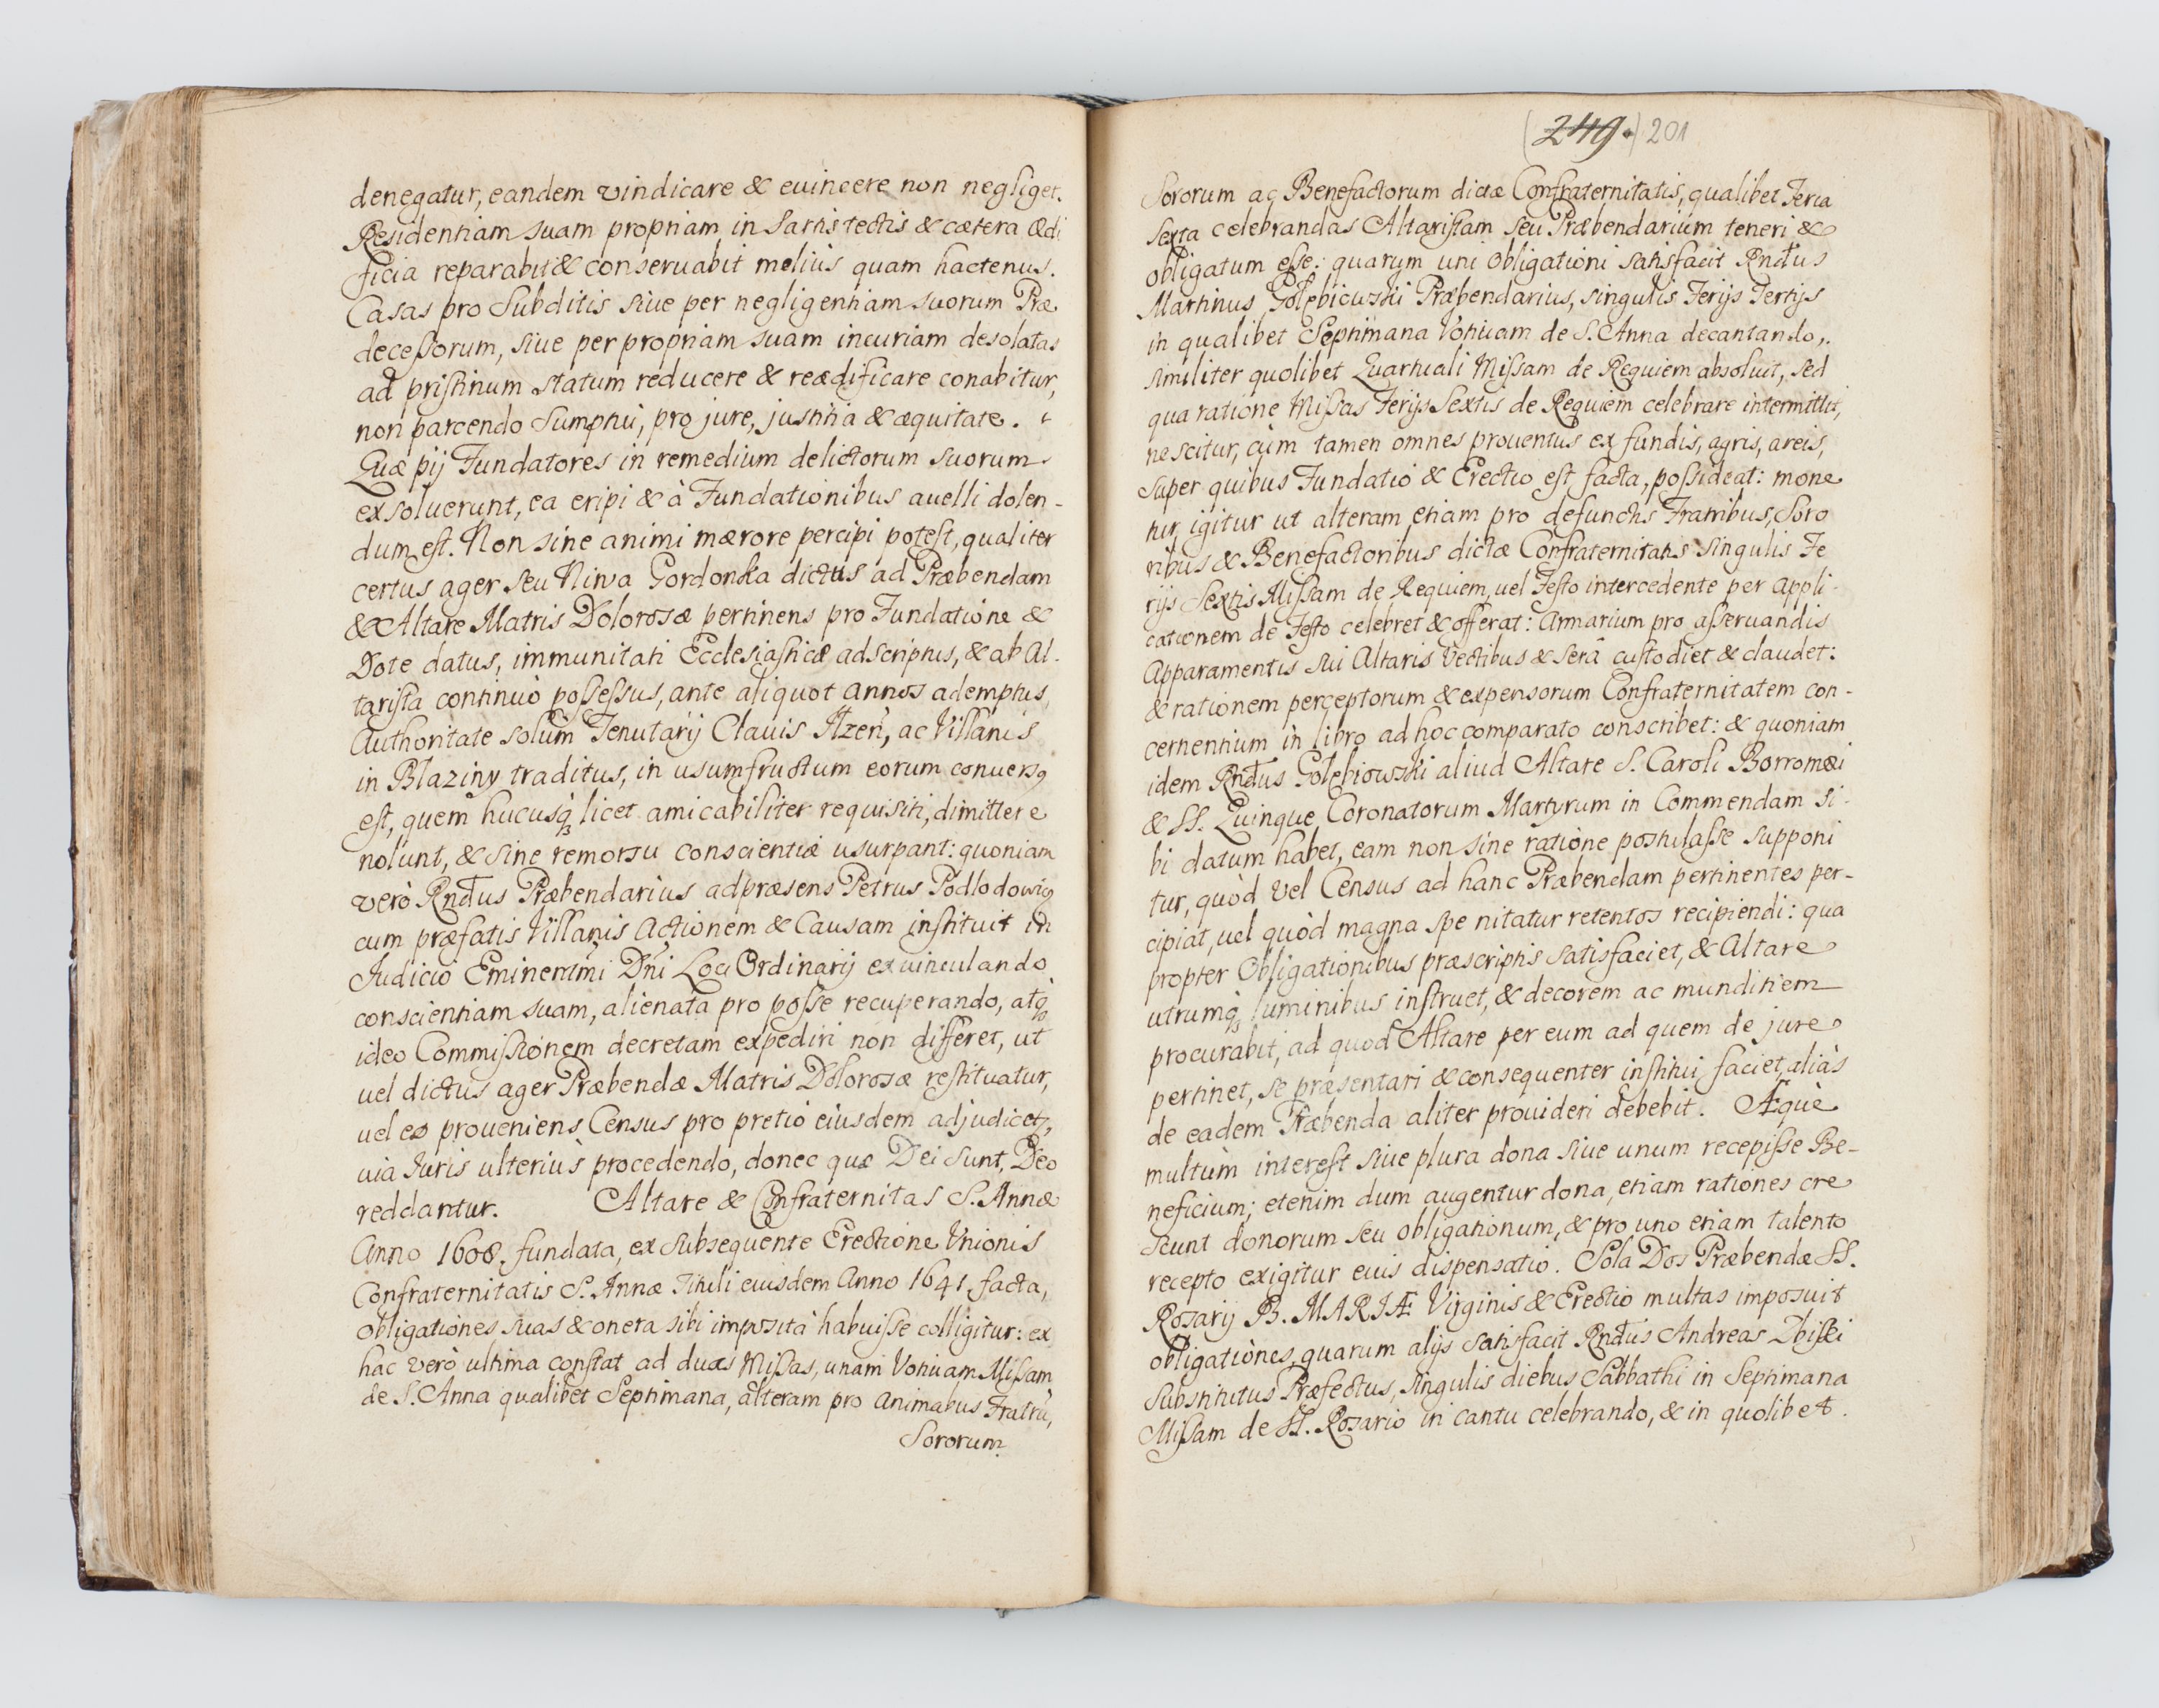 denegatur, eandem vindicare & euincere non negliget.
Residentiam suam propriam in Sartis tectis & cætera Ædi
ficia reparabit & conseruabit melius quam hactenus.
Casas pro Subditis siue per negligentiam suorum Præ
decessorum, siue per propriam suam incuriam desolatas
ad pristinum statum reducere & reædificare conabitur,
non parcendo Sumptui, pro jure, justitia & æquitate.
Quæ pij Fundatores in remedium delictorum suorum
exsoluerunt, ea eripi & à Fundationibus auelli dolen-
dum est. Non sine animi mærore percipi potest, qualiter
certus ager seu Niwa Gordonka dictus ad Præbendam
& Altare Matris Dolorosæ pertinens pro Fundatione &
Dote datus, immunitati Ecclesiasticæ adscriptus, & ab Al-
tarista continuò possessus, ante aliquot annos ademptus,
Authoritate solùm Tenutarij Clauis Ilzen̄, ac Villanis
in Blaziny traditus, in usumfructum eorum conuersꝯ
est, quem hucusq̃ licet amicabiliter requisiti, dimittere
nolunt, & sine remorsu conscientiæ usurpant: quoniam
verò Rndus Præbendarius ad præsens Petrus Podlodowiꝯ
cum præfatis Villanis Actionem & Causam instituit in
Judicio Eminentmi Dni Loci Ordinarij exuinculando
conscientiam suam, alienata pro posse recuperando, atq̃
ideo Commissionem decretam expediri non differet, ut
uel dictus ager Præbendæ Matris Dolorosæ restituatur,
uel eo proueniens Census pro pretio eiusdem adjudicetꝛ,
uia Iuris ulteriùs procedendo, donec quæ Dei sunt, Deo
reddantur. Altare & Confraternitas S. Annæ
Anno 1608. fundata, ex subsequente Erectione Vnionis
Confraternitatis S. Annæ Tituli eiusdem Anno 1641 facta,
obligationes suas & onera sibi imposita habuisse colligitur: ex
hac verò ultima constat ad duas Missas, unam Votiuam Missam
de S. Anna qualibet Septimana, alteram pro Animabus Fratrū,
Sororum
(249.) 201
Sororum ac Benefactorum dictæ Confraternitatis, qualibet Feria
Sexta celebrandas Altaristam seu Præbendarium teneri &
obligatum esse: quarum uni obligationi satisfacit Rndus
Martinus Gołębiowski Præbendarius, singulis Ferijs Tertijs
in qualibet Septimana Votiuam de S. Anna decantando,
similiter quolibet Quartuali Missam de Requiem absoluit, sed
qua ratione Missas Ferijs Sextis de Requiem celebrare intermittit,
nescitur, cùm tamen omnes prouentus ex fundis, agris, areis,
super quibus Fundatio & Erectio est facta, possideat: mone
tur igitur ut alteram etiam pro defunctis Fratribus, Soro
ribus & Benefactoribus dictæ Confraternitatis singulis Fe
rijs Sextis Missam de Requiem, uel Festo intercedente per appli-
cationem de Festo celebret & offerat: Armarium pro asseruandis
Apparamentis sui Altaris Vectibus & Serâ custodiet & claudet:
& rationem perceptorum & expensorum Confraternitatem con-
cernentium in libro ad hoc comparato conscribet: & quoniam
idem Rndus Gołębiowski aliud Altare S. Caroli Borromæi
& SS. Quinque Coronatorum Martyrum in Commendam si-
bi datum habet, eam non sine ratione postulasse supponi
tur, quòd vel Census ad hanc Præbendam pertinentes per-
cipiat, uel quòd magna spe nitatur retentos recipiendi: qua
propter Obligationibus præscriptis satisfaciet, & Altare
utrumq̃ luminibus instruet, & decorem ac munditiem
procurabit, ad quod Altare per eum ad quem de jure
pertinet, se præsentari & consequenter institui faciet, aliàs
de eadem Præbenda aliter prouideri debebit. Æquè
multùm interest siue plura dona siue unum recepisse Be-
neficium; etenim dum augentur dona, etiam rationes cre
scunt donorum seu obligationum, & pro uno etiam talento
recepto exigitur eius dispensatio. Sola Dos Præbendæ SS.
Rosarij B. MARIÆ Virginis & Erectio multas imposuit
obligationes, quarum alijs satisfacit Rndus Andreas Zbiski
Substitutus Præfectus, singulis diebus Sabbathi in Septimana
Missam de SS. Rosario in cantu celebrando, & in quolibet